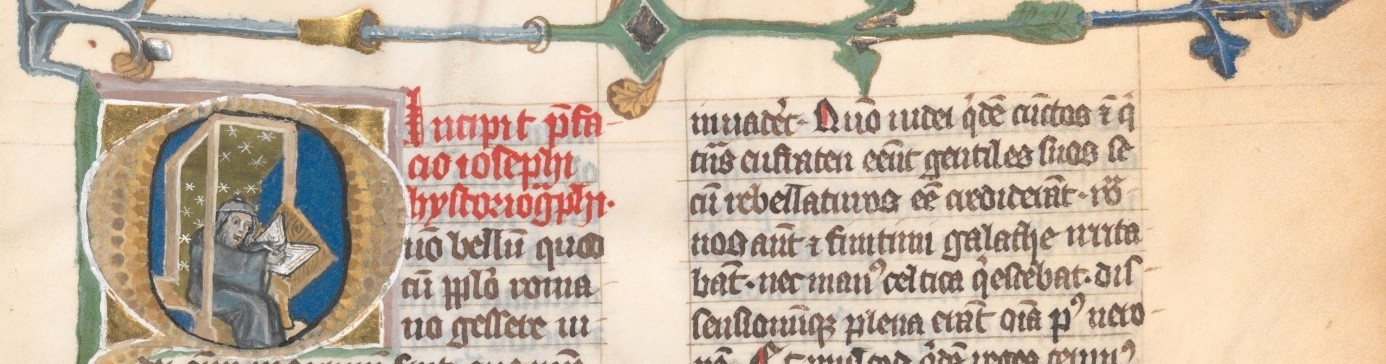 Incipit p̄fa
cio iosephi
hystoriog̃phi.
uō bellū quod
cū pplo roma
no gessere iu
inuader̃. Quō iudei q̇dē cūctos ⁊ q̇
trās eufraten eēnt gentiles suos se
cū rebellaturos eē crediderāt. ro
nos aūt ⁊ finitimi galathe irrita
bāt. nec man⁹ celtica q̇escebat. dis
sensionūq; plena erāt oīa p⁹ nero